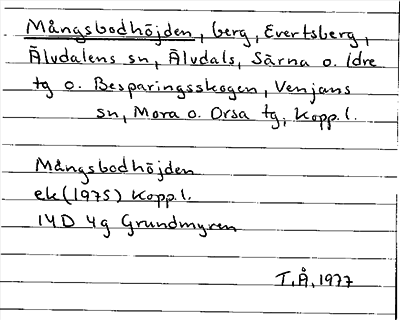 Mångsbodhöjden, berg, Evertsberg,
Älvdalens sn, Älvdals, Särna o. Idre
tg o. Besparingsskogen, Venjans
sn, Mora o. Orsa tg, Kopp.l.
Mångsbodhöjden
ek(1975) Kopp.l.
14D 4g Grundmyren
T.Å. 1977